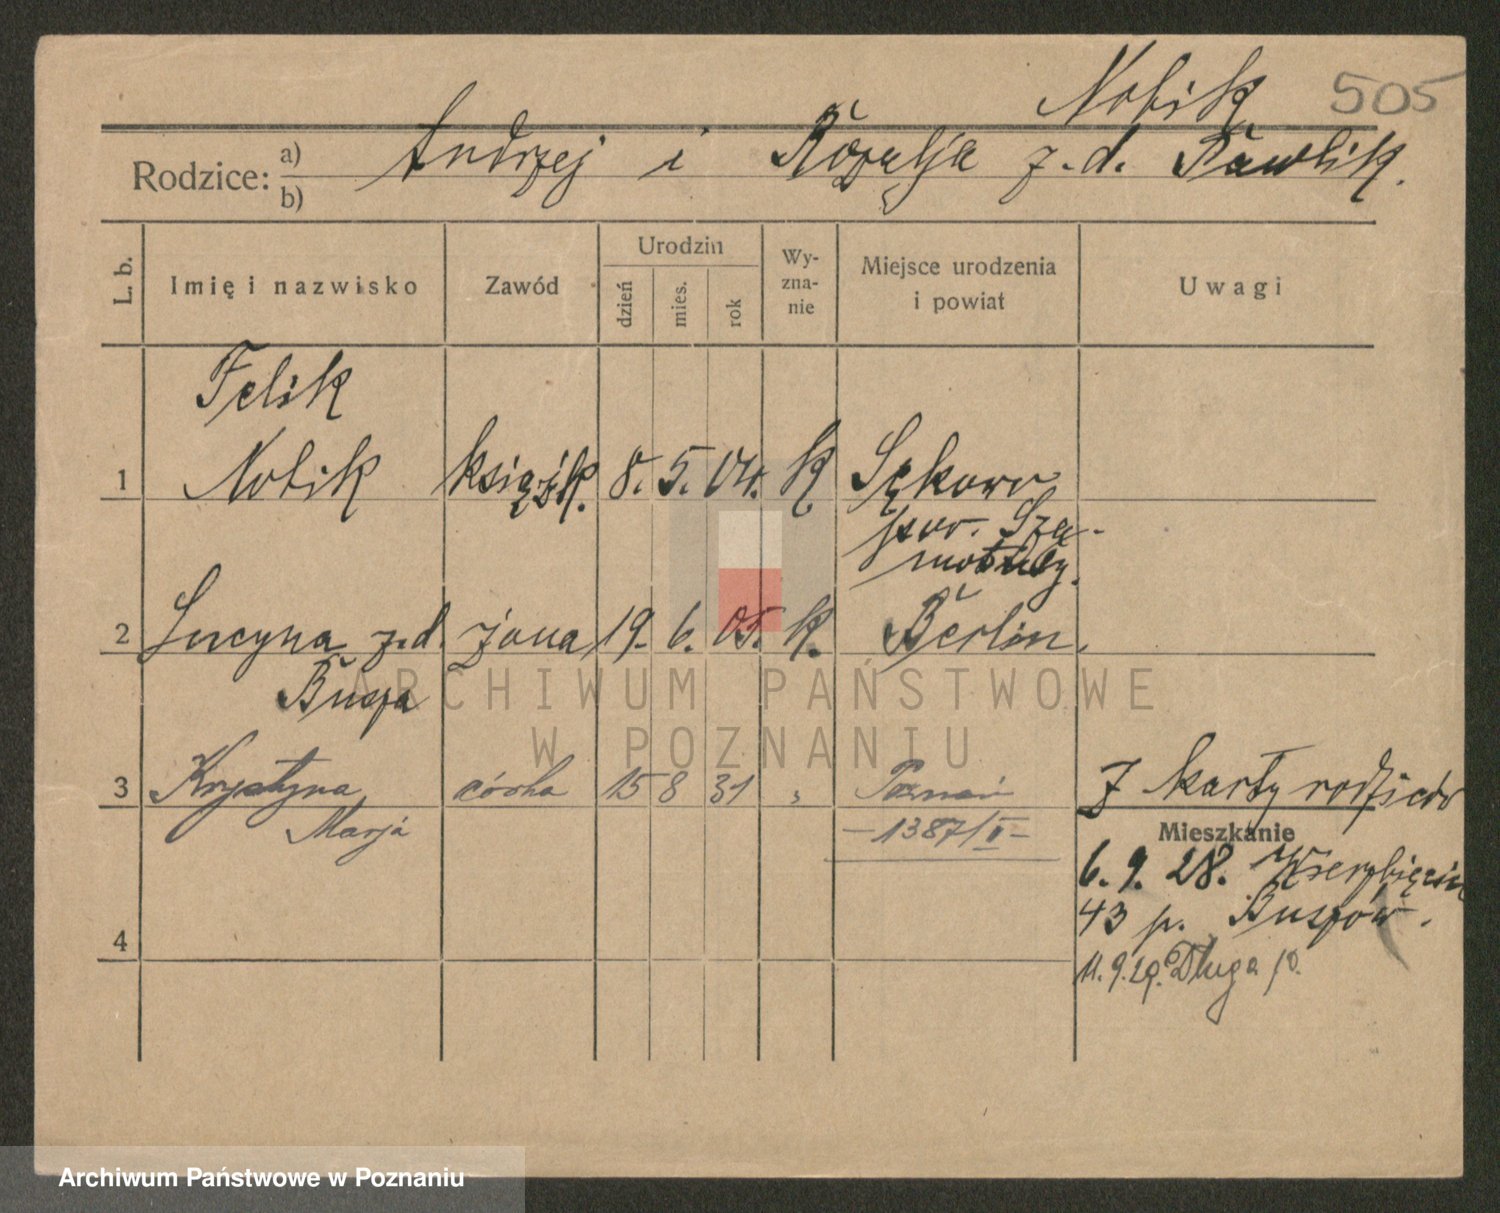 Nobik 505
Rodzice: a) Andrzej i Rozalja z.d. Pawlik.
b)
L. b. Imię i nazwisko Zawód Urodzin dzień mies. rok Wy-zna-nie Miejsce urodzenia i powiat Uwagi
Felik
1 Nobik książk. 8. 5. 04. K. Sękowo
pow. Sza-
motuły.
2 Lucyna z.d. żona 19. 6. 05. K. Berlin.
Busza
3 Krystyna córka 15 8 31 " Poznań Z karty rodziców
Marja — 1387/II —
Mieszkanie
6. 9. 28. Wierzbięcin
43 p. Buszów.
4
11. 9. 29. Długa 10.
ARCHIWUM PAŃSTWOWE
W POZNANIU
Archiwum Państwowe w Poznaniu